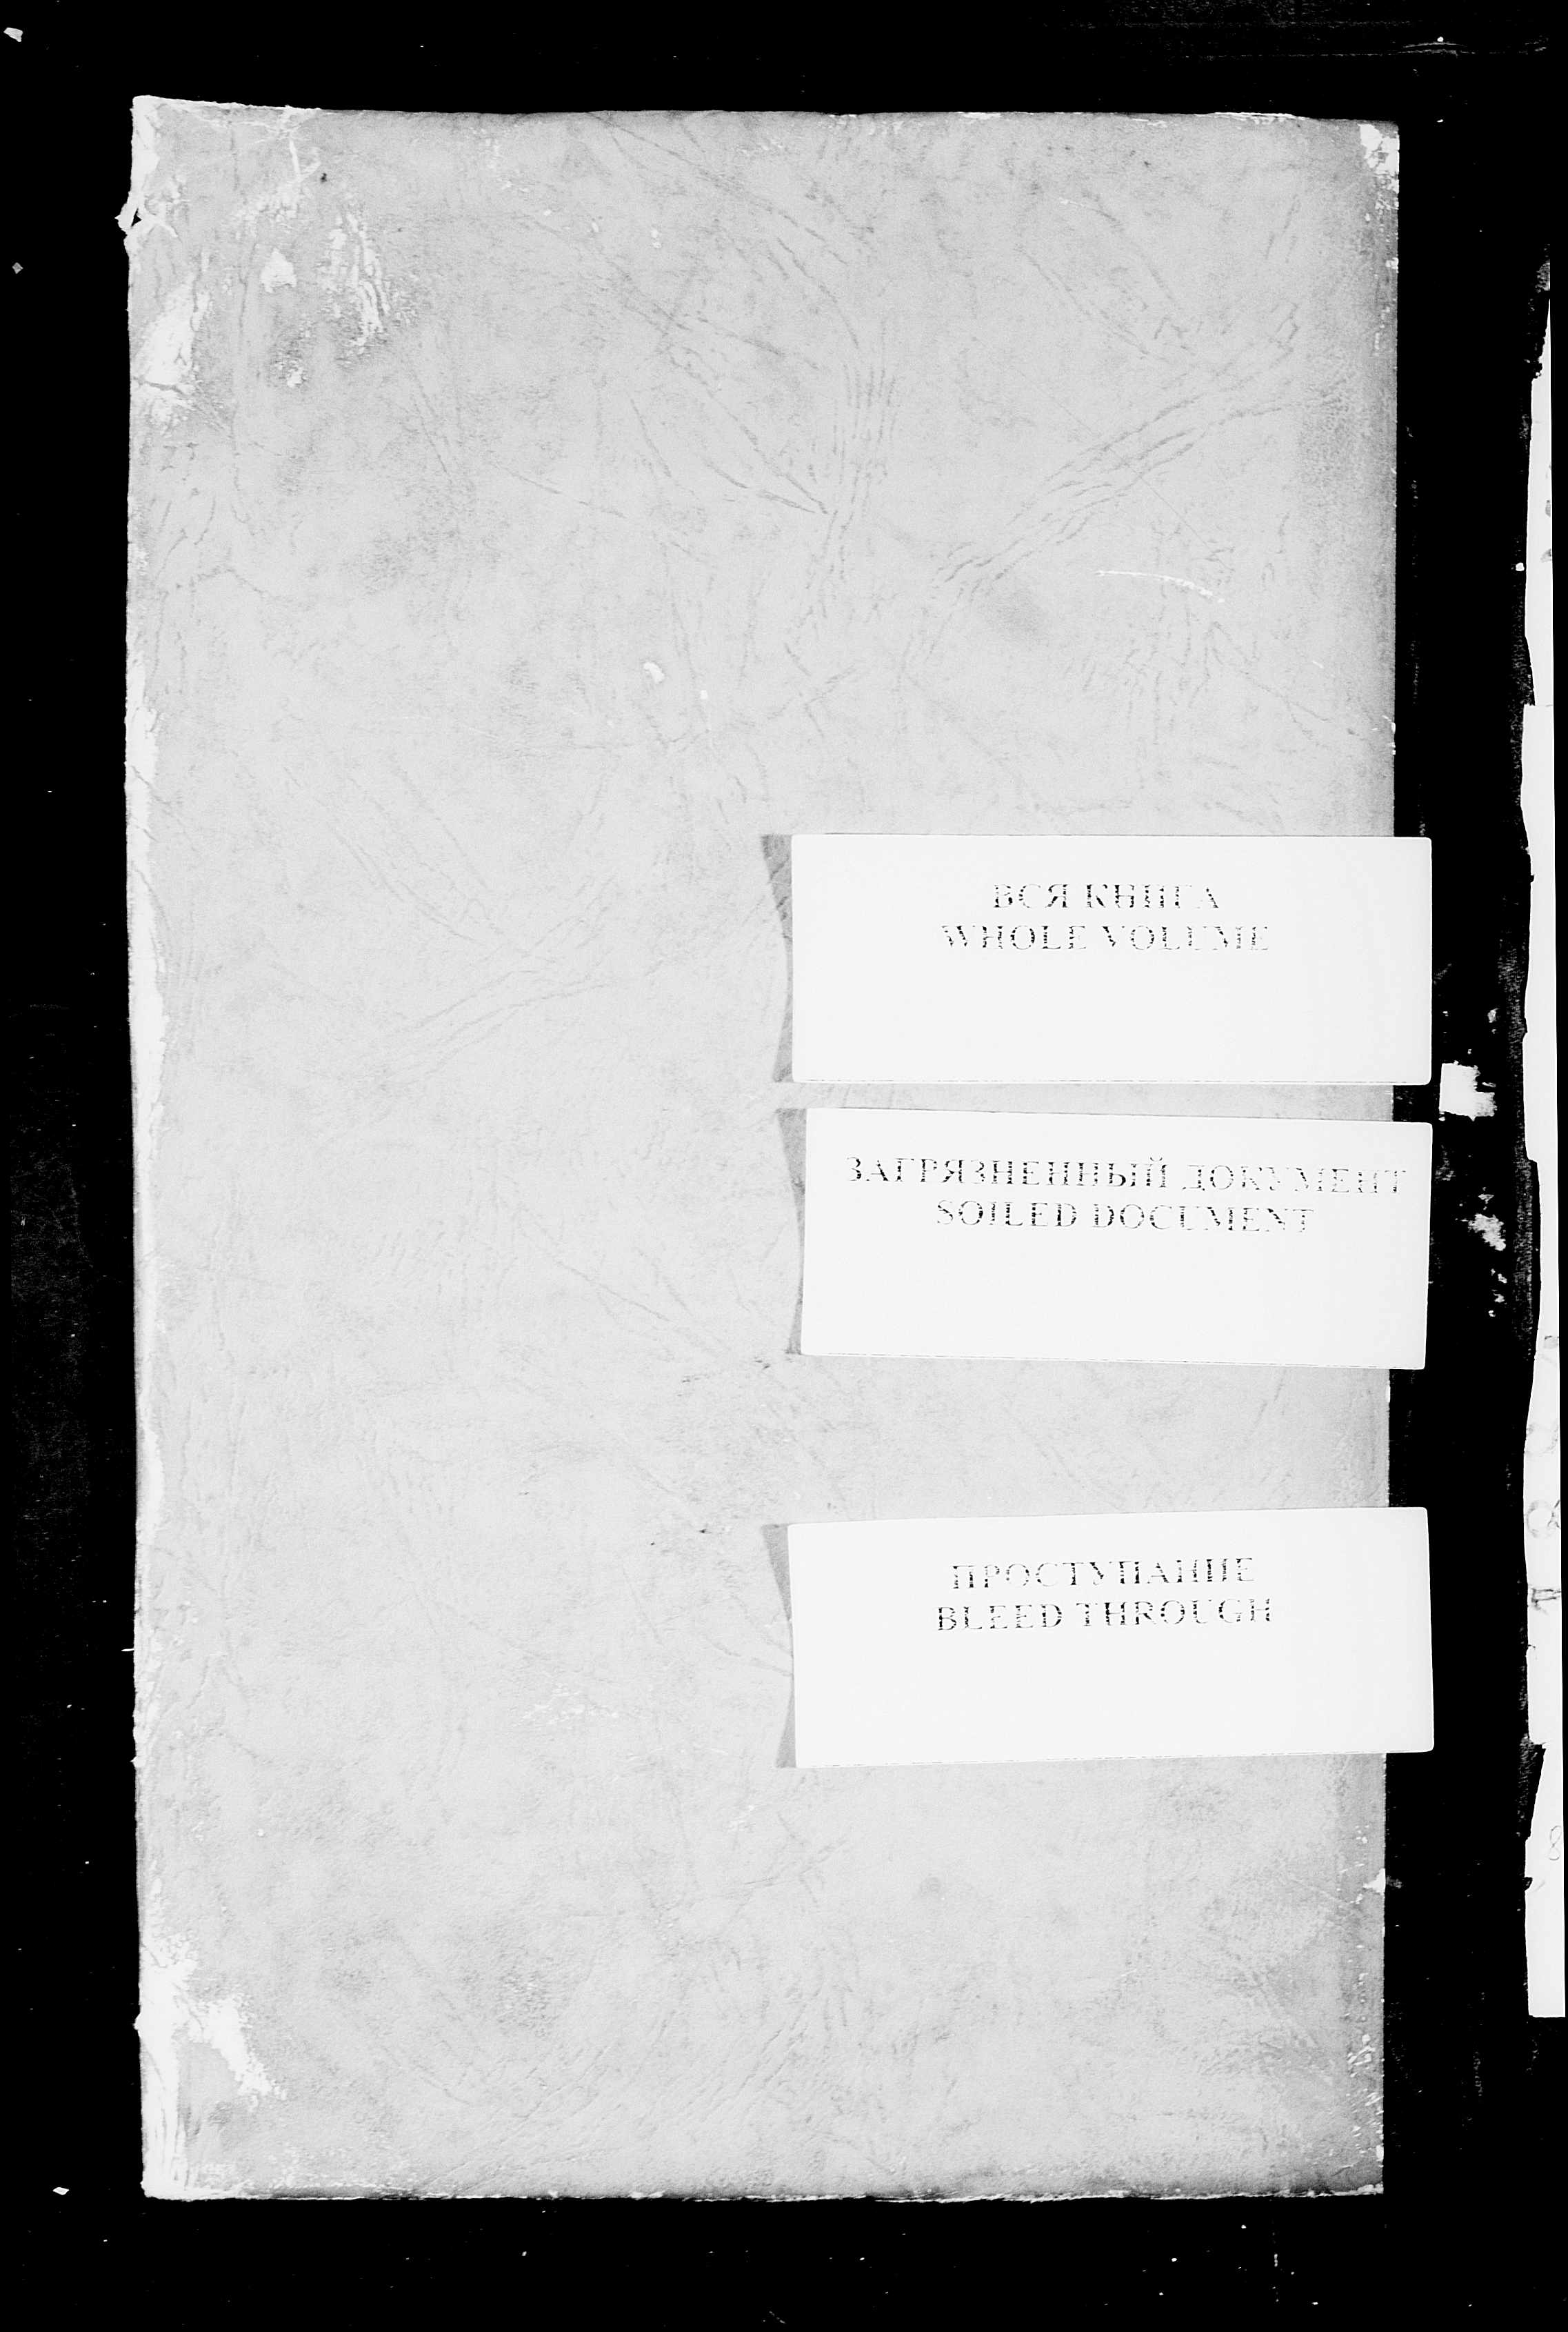 ВСЯ КНИГА
WHOLE VOLUME
ЗАГРЯЗНЕННЫЙ ДОКУМЕНТ
SOILED DOCUMENT
ПРОСТУПАНИЕ
BLEED THROUGH